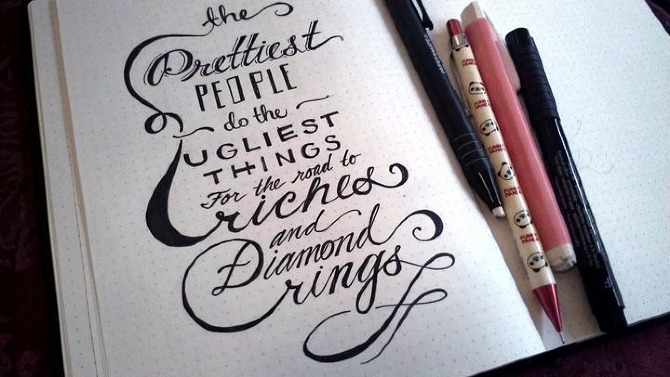 the
Prettiest
PEOPLE
do the
UGLIEST
THINGS
For the road to
riches
and
Diamond
rings